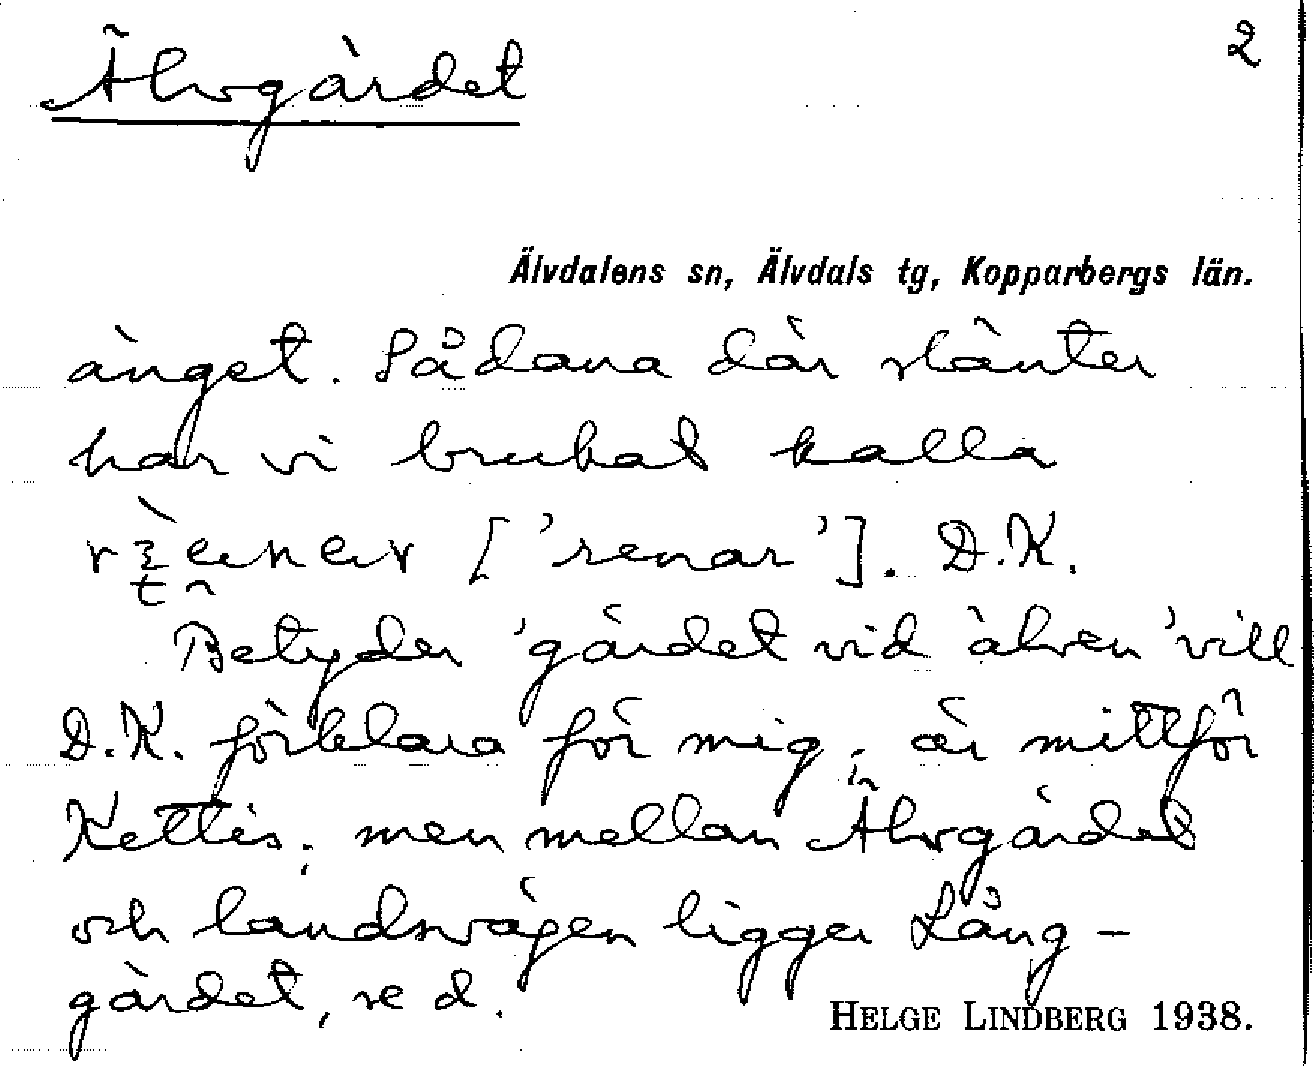 Älvgärdet
2
Älvdalens sn, Älvdals tg, Kopparbergs län.
änget. Sådana där slänter
har vi brukat kalla
['renar']. D.K.
Betyder 'gärdet vid älven' vill
D.K. förklara för mig; är mittför
Kettis; men mellan Älvgärdet
och landsvägen ligger Lång-
gärdet, se d.
HELGE LINDBERG 1938.